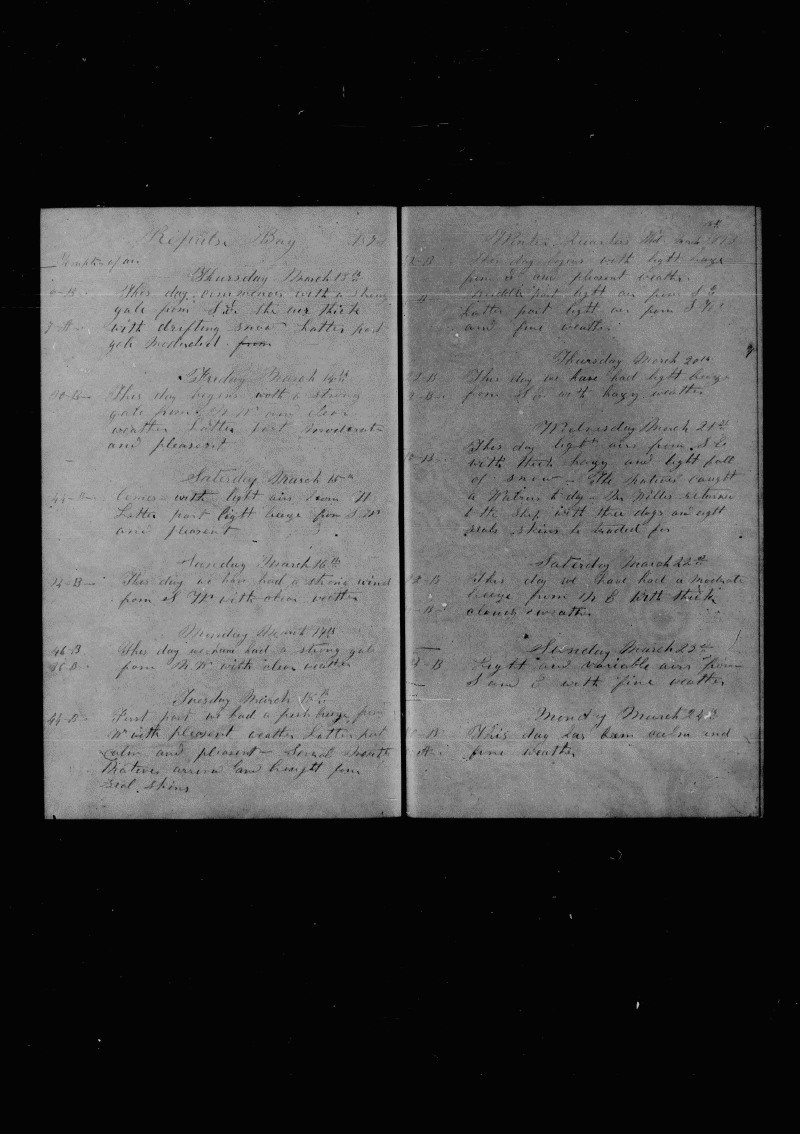 Repulse Bay 187
Temptr of air
Thursday March 13th
This day commences with a strong
gale from S.E. the air thick
with drifting snow Latter part
gale moderated from
Friday March 14th
This day begins with a strong
gale from N W and clear
weather Latter part moderate
and pleasent
Saturday March 15th
44-B Comes with light airs from N
Latter part light breeze from S W
and plesent
Sunday March 16th
12-B This day we have had a strong wind
from N W with clear weather
Monday March 17th
46-B This day we have had a strong gale
36-B from N.W. with clear weather
Tuesday March 18th
44-B First part we had a fresh breeze from
W with plesent weather Latter part
calm and plesent - Several
Natives arrived and brought some
Seal Skins
Winter Quarters Wed March 19th
This day begins with light breeze
from and plesent weather
Middle part light air from
Latter part light air from S
and fine weather
Thursday March 20th
This day we have had light breeze
from S E with hazy weather
Wednesday March 21st
This day light airs from S E
with thick hazy and light fall
of snow - The natives caught
a to day - Mr Miller returns
to the ship with three dogs and eight
seals skins he traded for
Saturday March 22nd
This day we have had a moderate
breeze from N E with thick
cloudy weather
Sunday March 23rd
Light and variable airs from
S and E with fine weather
Monday March 24th
This day has bem calm and
fine weather